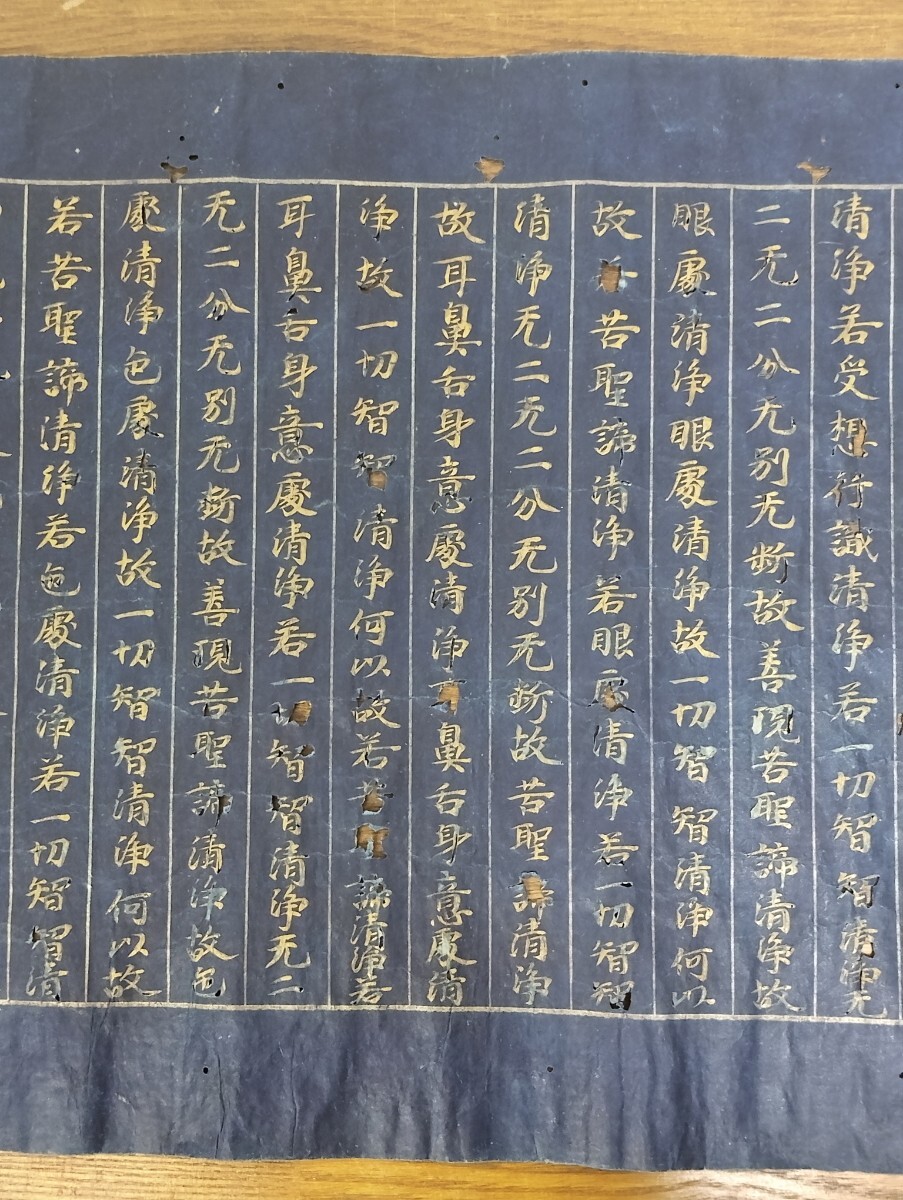 清淨若受想行識清淨若一切智智清淨无
二无二分无別无斷故善現苦聖諦清淨故
眼處清淨眼處清淨故一切智智清淨何以
故若苦聖諦清淨若眼處清淨若一切智智
清淨无二无二分无別无斷故苦聖諦清淨
故耳鼻舌身意處清淨耳鼻舌身意處清
淨故一切智智清淨何以故若苦聖諦清淨若
耳鼻舌身意處清淨若一切智智清淨无二
无二分无別无斷故善現苦聖諦清淨故色
處清淨色處清淨故一切智智清淨何以故
若苦聖諦清淨若色處清淨若一切智智清